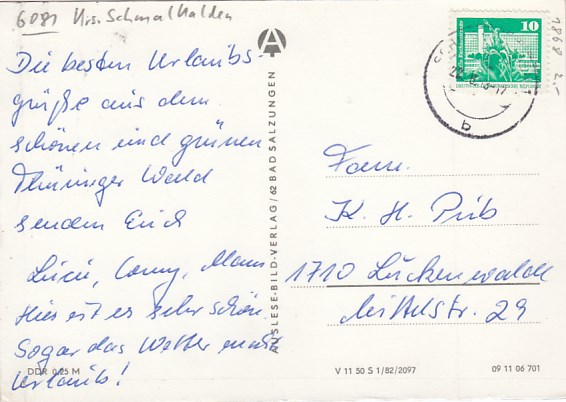 6081 Krs. Schmalkalden
Die besten Urlaubs-
grüße aus dem
schönen und grünen
Thüringer Wald
senden Euch
Lucie, Conny, Mann
Hier ist es sehr schön
Sogar das Wetter macht
Urlaub!
DDR 0,25 M
AUSLESE-BILD-VERLAG / 62 BAD SALZUNGEN
10
DEUTSCHE DEMOKRATISCHE REPUBLIK
b
1868
2,-
Fam.
K. H. Pub
1710 Luckenwalde
Mittelstr. 29
V 11 50 S 1/82/2097
09 11 06 701